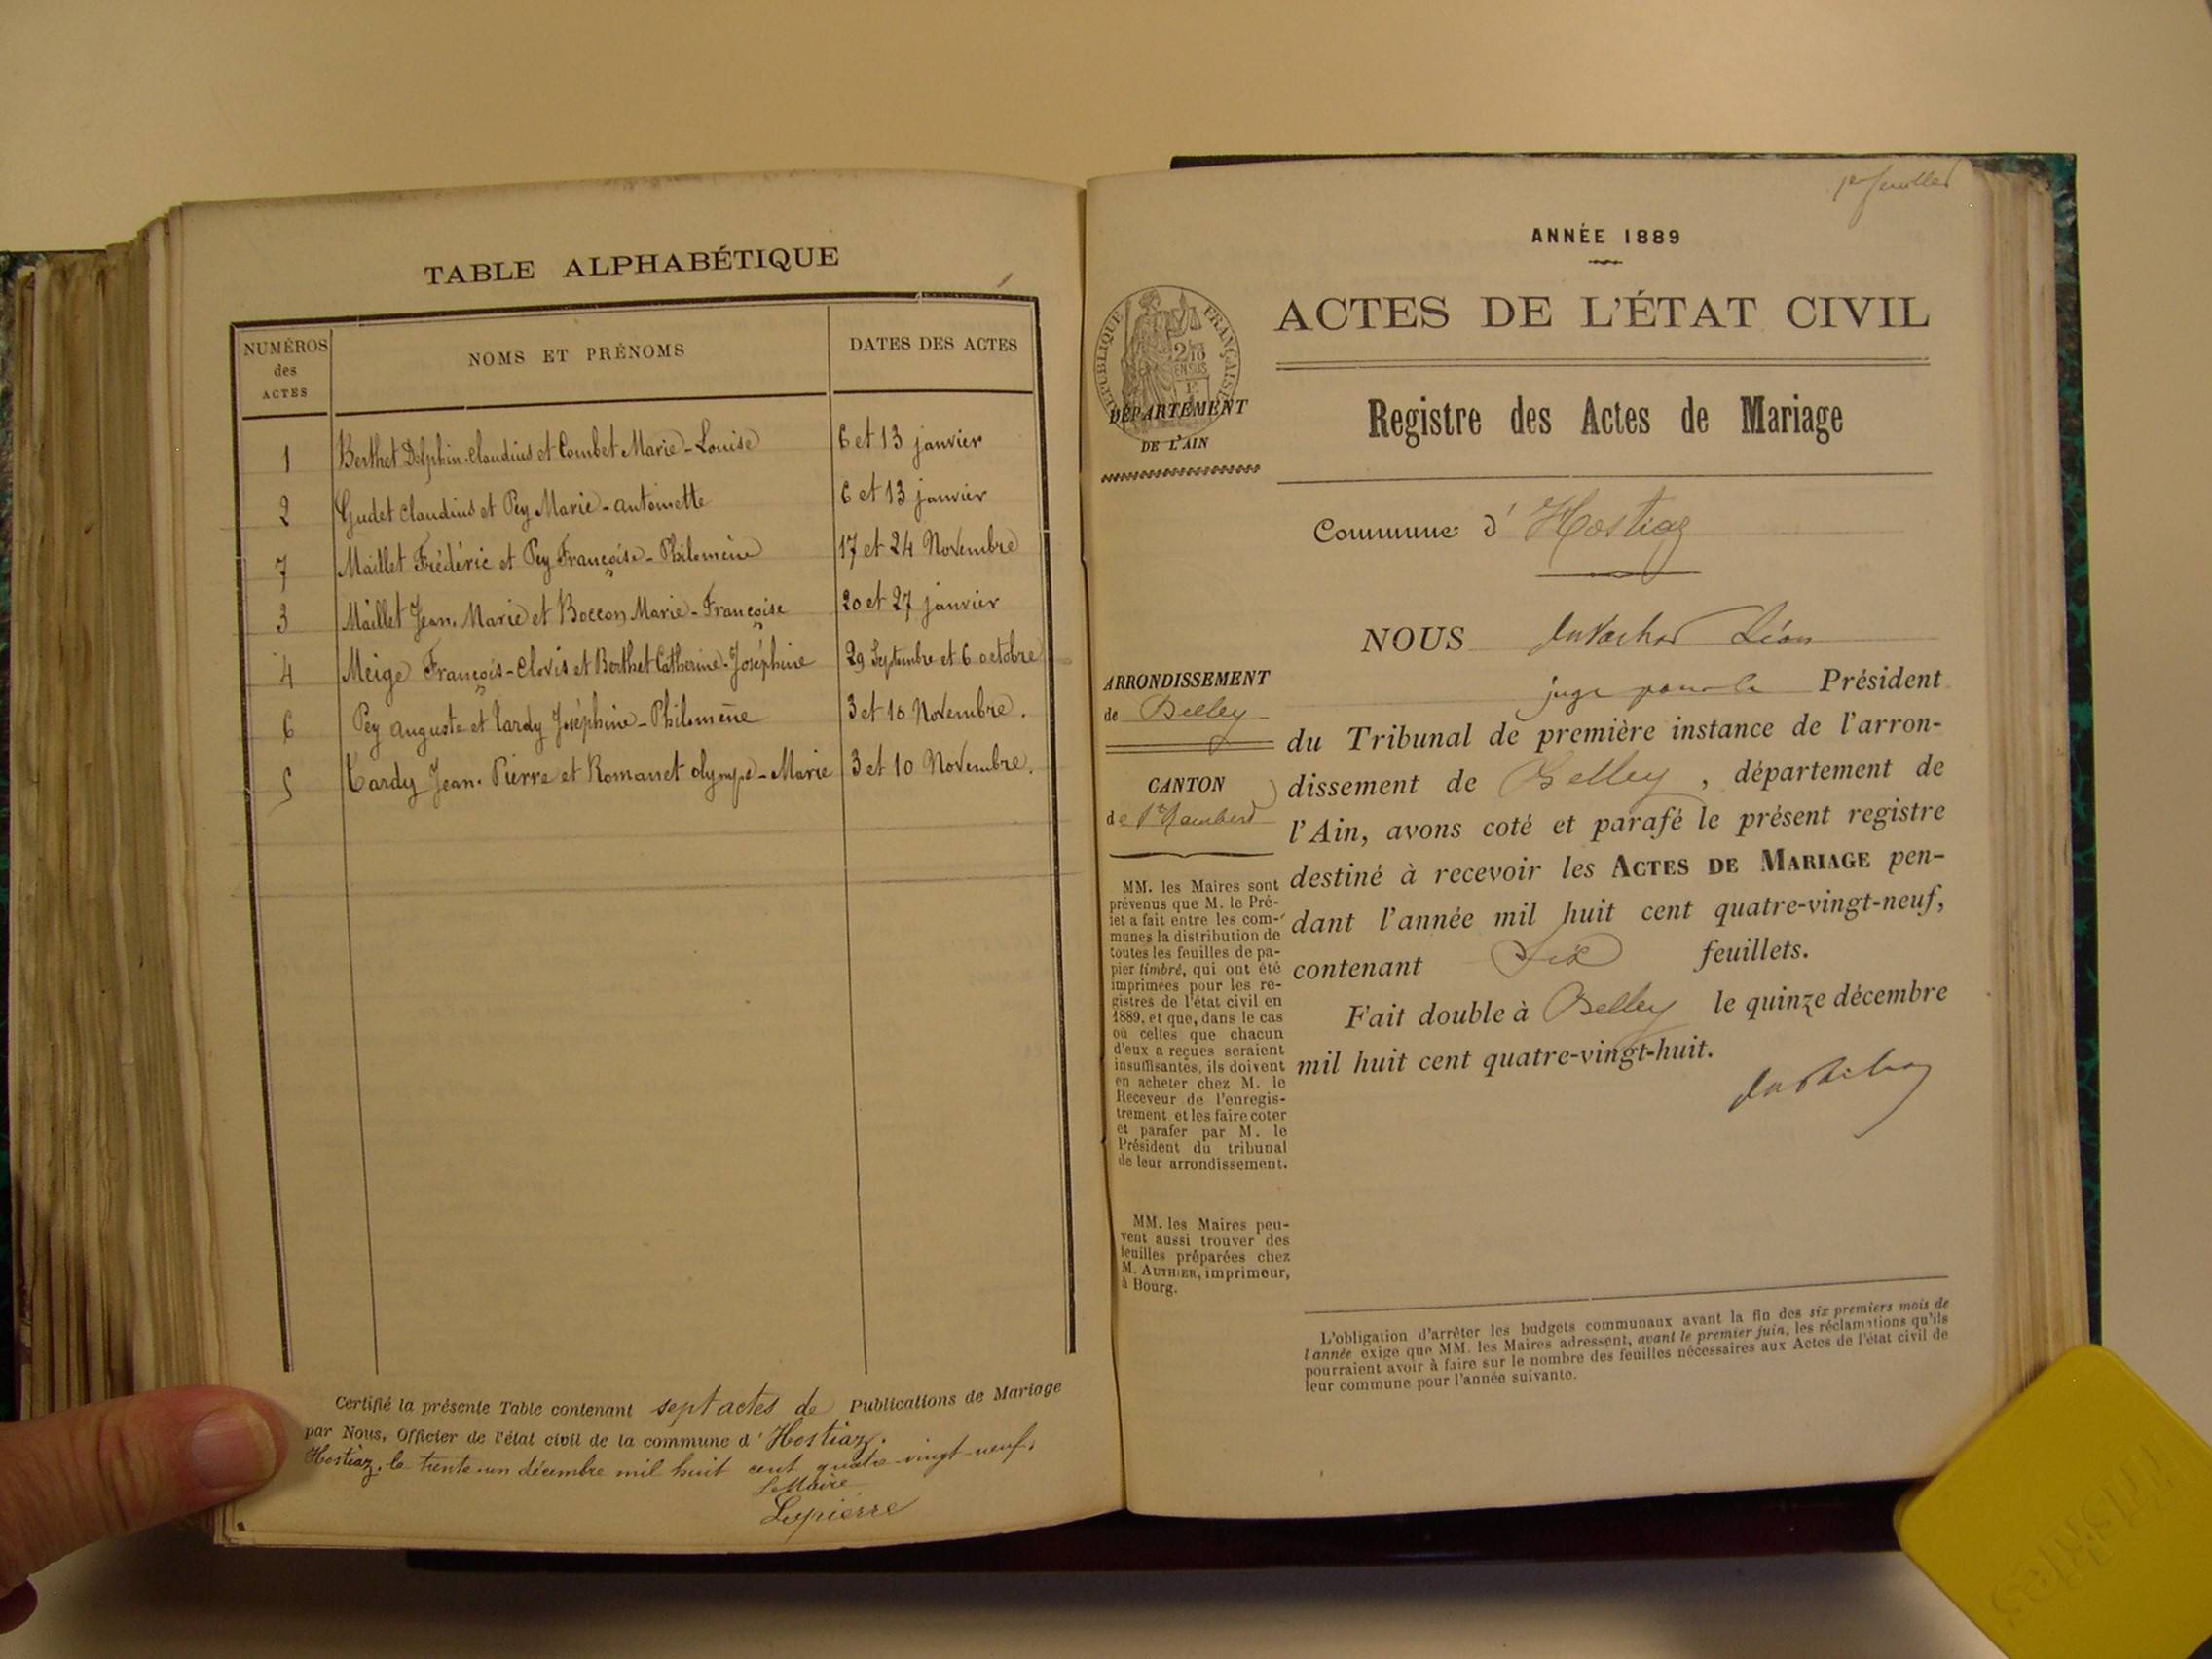 TABLE ALPHABÉTIQUE
NUMÉROS des ACTES | NOMS ET PRÉNOMS | DATES DES ACTES
1 Berthet Delphin-Claudius et Combet Marie-Louise 6 et 13 janvier
2 Gudet Claudius et Pey Marie-Antoinette 6 et 13 janvier
7 Maillet Frédéric et Pey Françoise-Philomène 17 et 24 Novembre
3 Maillet Jean-Marie et Boccon Marie-Françoise 20 et 27 janvier
4 Meige François-Clovis et Berthet Catherine-Joséphine 29 Septembre et 6 octobre
6 Pey Auguste et Tardy Joséphine-Philomène 3 et 10 Novembre.
5 Tardy Jean-Pierre et Romanet Olympe-Marie 3 et 10 Novembre.
Certifié la présente Table contenant sept actes de Publications de Mariage
par Nous, Officier de l'état civil de la commune d'Hostiaz.
Hostiaz, le trente-un décembre mil huit cent quatre-vingt-neuf.
Le Maire
Lapierre
1er feuillet
ANNÉE 1889
ACTES DE L'ÉTAT CIVIL
RÉPUBLIQUE FRANÇAISE
2/10 EN SUS
DÉPARTEMENT
DE L'AIN
Registre des Actes de Mariage
Commune d'Hostiaz
ARRONDISSEMENT
de Belley
CANTON
de St Rambert
MM. les Maires sont
prévenus que M. le Pré-
fet a fait entre les com-
munes la distribution de
toutes les feuilles de pa-
pier timbré, qui ont été
imprimées pour les re-
gistres de l'état civil en
1889, et que, dans le cas
où celles que chacun
d'eux a reçues seraient
insuffisantes, ils doivent
en acheter chez M. le
Receveur de l'enregis-
trement et les faire coter
et parafer par M. le
Président du tribunal
de leur arrondissement.
MM. les Maires peu-
vent aussi trouver des
feuilles préparées chez
M. AUTHIER, imprimeur,
à Bourg.
NOUS Léon
juge pour le Président
du Tribunal de première instance de l'arron-
dissement de Belley, département de
l'Ain, avons coté et parafé le présent registre
destiné à recevoir les ACTES DE MARIAGE pen-
dant l'année mil huit cent quatre-vingt-neuf,
contenant six feuillets.
Fait double à Belley le quinze décembre
mil huit cent quatre-vingt-huit.
L'obligation d'arrêter les budgets communaux avant la fin des six premiers mois de
l'année exige que MM. les Maires adressent, avant le premier juin, les réclamations qu'ils
pourraient avoir à faire sur le nombre des feuilles nécessaires aux Actes de l'état civil de
leur commune pour l'année suivante.